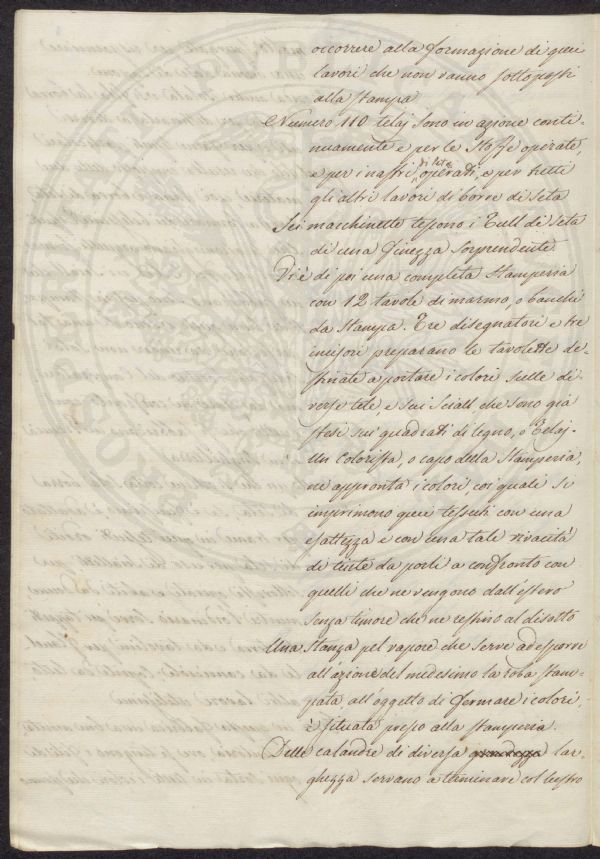 occorrere alla formazione di quei
lavori che non vanno sottoposti
alla stampa
Numero 110 telaj sono in azione conti-
nuamente e per le Stoffe operate,
di seta
e per i nastri operati, e per tutti
gli altri lavori di borre di Seta
Sei macchinette tessono i Tull di Seta
di una finezza sorprendente.
Vi è di poi una completa Stamperia
con 12 tavole di marmo, o banchi
da Stampa. Tre disegnatori e tre
incisori preparano le tavolette de-
stinate a portare i colori sulle di-
verse tele e sui Sciall che sono già
stesi sui quadrati di legno, o Telaj.
Un Colorista, o capo della Stamperia,
ne appronta i colori, coi quali si
imprimono quei tessuti con una
esattezza e con una tale vivacità
di tinte da porli a confronto con
quelli che ne vengono dall'estero
senza timore che ne restino al disotto
Una Stanza pel vapore che serve ad esporre
all'azione del medesimo la roba stam-
pata, all'oggetto di fermare i colori,
è situata presso alla stamperia.
Delle calandre di diversa grandezza lar-
ghezza servano a terminare col lustro